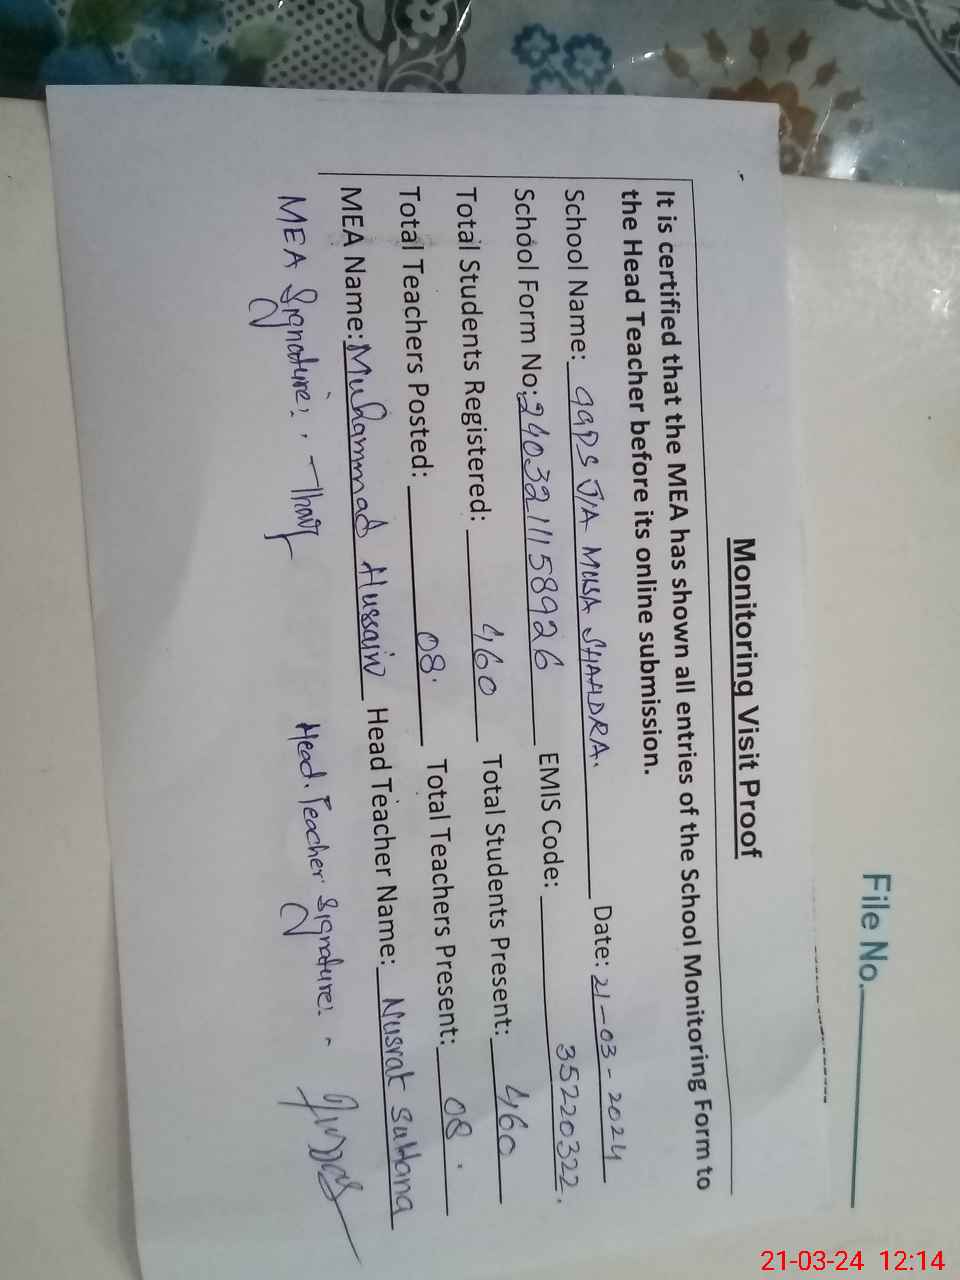 File No.
Monitoring Visit Proof
It is certified that the MEA has shown all entries of the School Monitoring Form to
the Head Teacher before its online submission.
School Name: GGPS J/A MUSA SHAHDRA. Date: 21-03-2024
School Form No: 24032111158926 EMIS Code: 35220322.
Total Students Registered: 460 Total Students Present: 460
Total Teachers Posted: 08. Total Teachers Present: 08.
MEA Name: Muhammad Hussain Head Teacher Name: Nusrat Sultana
MEA Signature: Head Teacher Signature:
21-03-24 12:14